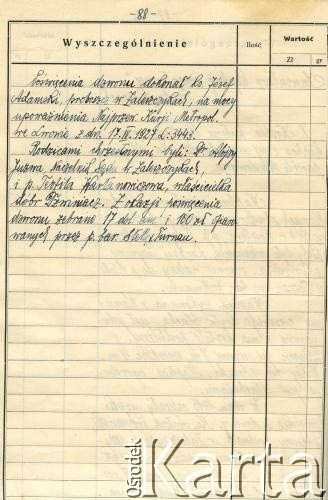 -88-
Wyszczególnienie
Ilość
Wartość
Zł
gr
Poświęcenia dzwonu dokonał ks. Józef
Adamski, proboszcz w Zaleszczykach, na mocy
upoważnienia Najprzew. Kurji Metropol.
we Lwowie z dn. 17.IV.1927 L:3443.
Rodzicami chrzestnymi byli: Dr. Alojzy
Juzwa, naczelnik Sądu w Zaleszczykach,
i p. Teofila Hankanowiczowa, właścicielka
dóbr Dźwiniacz. Z okazji poświęcenia
dzwonu zebrano 17 dol. am. i 100 zł ofiaro-
wanych przez p. bar. Stellę Turnau.
Ośrodek
Karta